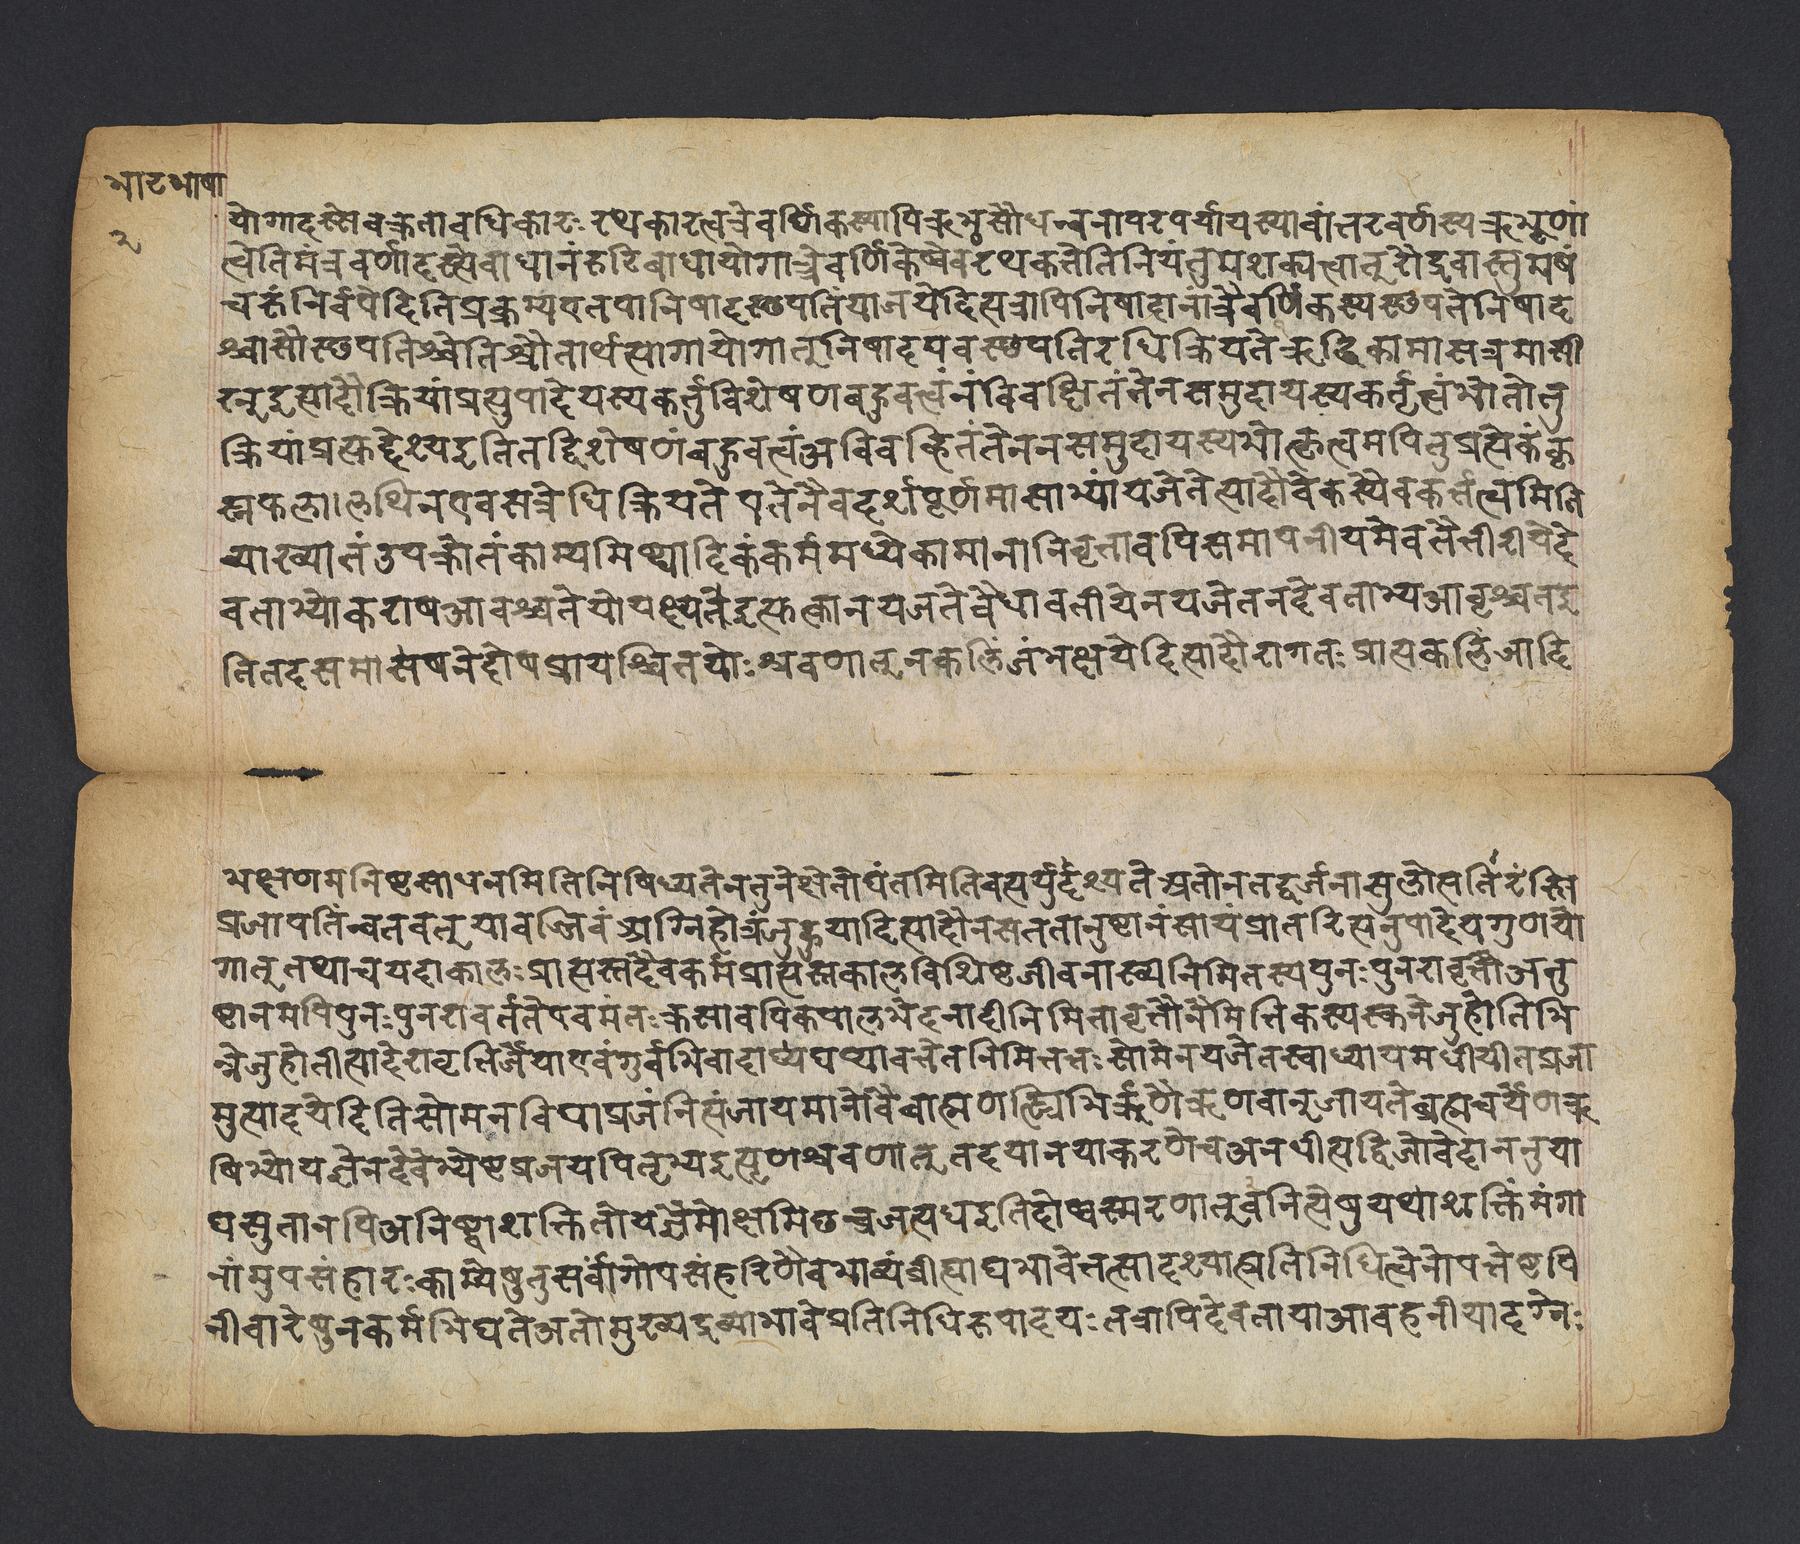 भाटभाषा
२
योगादस्त्येवक्रतावधिकारः रथकारत्वत्रैवर्णिकस्यापिऋभुसौधन्वनापरपर्यायस्यावांतरवर्णस्यऋभूणां
त्वेतिमंत्रवर्णादस्त्येवाधानंरूढिबाधायोगात्रैवर्णिकेष्वेवरथकर्त्तेतिनियंतुमशक्यत्वात् रौद्रवास्तुमयं
चरुंनिर्वपेदितिप्रक्रम्यएतयानिषादस्थपतिंयाजयेदित्यत्रापिनिषादानांत्रैवर्णिकस्यस्थपतेनिषाद
श्चासौस्थपतिश्चेतिश्रौतार्थत्यागायोगात् निषादएवस्थपतिरधिक्रियते ऋद्धिकामासत्रमासी
रन्इत्यादौक्रियांप्रत्युपादेयस्यकर्तुर्विशेषणबहुवत्वंनंविवक्षितंतेनसमुदायस्यकर्तृत्वंभोतोतु
क्रियांप्रत्युद्देश्यइतितद्विशेषणंबहुवत्वंअविवक्षितंतेननसमुदायस्यभोत्कृत्वमपितुप्रत्येकंकृ
त्स्नफला।लथिनएवसत्रेधिक्रियते एतेनैवदर्शपूर्णमासाभ्यांयजेतेत्यादौवेकस्यैवकर्त्तत्वमिति
व्याख्यातं उपक्रांतंकाम्यमिष्ट्यादिकंकर्ममध्येकामानानिवृत्तावपिसमापनीयमेवतैत्तीरीयेदे
वताभ्योकराषआवश्च्यतेयोयक्ष्यतैइत्युत्कानयजतेत्रैधावतीयेनयजेतनदेवताभ्यआवृश्च्यतइ
तितदसमासंषनेदोषप्रायश्चितयोः श्रवणात् नकलिंजंभक्षयेदित्यादौरागतः प्राप्तकलिंआदि
भक्षणमनिष्टसाधनमितिनिषिध्यतेनतुनेक्षेतोद्यंतमितिवत्पर्युर्दश्यतेअतोनतद्वर्जनासुत्तोसतिंरंस्ति
प्रजापतिंव्रतवत् यावज्जिवंअग्निहोत्रंजुहुयादित्यादौनसततानुष्टानंसायंप्रातरित्यनुपादेयगुणयो
गात् तथाचयदाकालः प्राप्यस्तदैवकर्मप्राप्तस्तकालविशिष्टजीवनाख्यनिमितस्यपुनःपुनरावृत्तौअनु
ष्टानमपिपुनःपुनरावर्ततेएवमंतःक्रत्सावपिकपालभेदनादीनिमितावृतौनैमित्तिकस्यस्कन्नेजुहोतिभि
न्नेजुहोतीत्यादेरावृत्तिर्ज्ञेयाएवंगुर्वभिवादाद्यंघप्यावर्त्तेतनिमित्ततः सोमेनयजेतस्वाध्यायमधीयीतप्रजा
मुत्पादयेदितिसोमनविद्याप्रजंनित्यंजायमानोवैब्राह्मणत्स्त्रिभिर्ऋणैऋणवान्जायतेब्रह्मचर्येणऋ
षिभ्योयज्ञेनदेवेभ्येष्टप्रजयपितृभ्यइत्यृणश्रवणात् तदयानयाकरणेचअनधीत्यद्विजोवेदाननुया
द्यसुतानपिअनिष्ट्वाशक्तितोयज्ञैर्मोक्षमिछन्व्रजत्यधइतिदोष्वस्मरणात्वनित्येषुयथाशक्तिंमंगा
नांमुपसंहारः काम्येषुतुसर्वांगोपसंहरिणैवभाव्यंब्रीह्याद्यभावेतत्सादृश्यात्प्रतिनिधित्वेनोपत्तेष्टपि
नीवारेषुनकर्मभिद्यतेअतोमुख्यद्रव्याभावेप्रतिनिधिरुपादयः तत्रापिदेवतायाआवहनीयादग्नेः